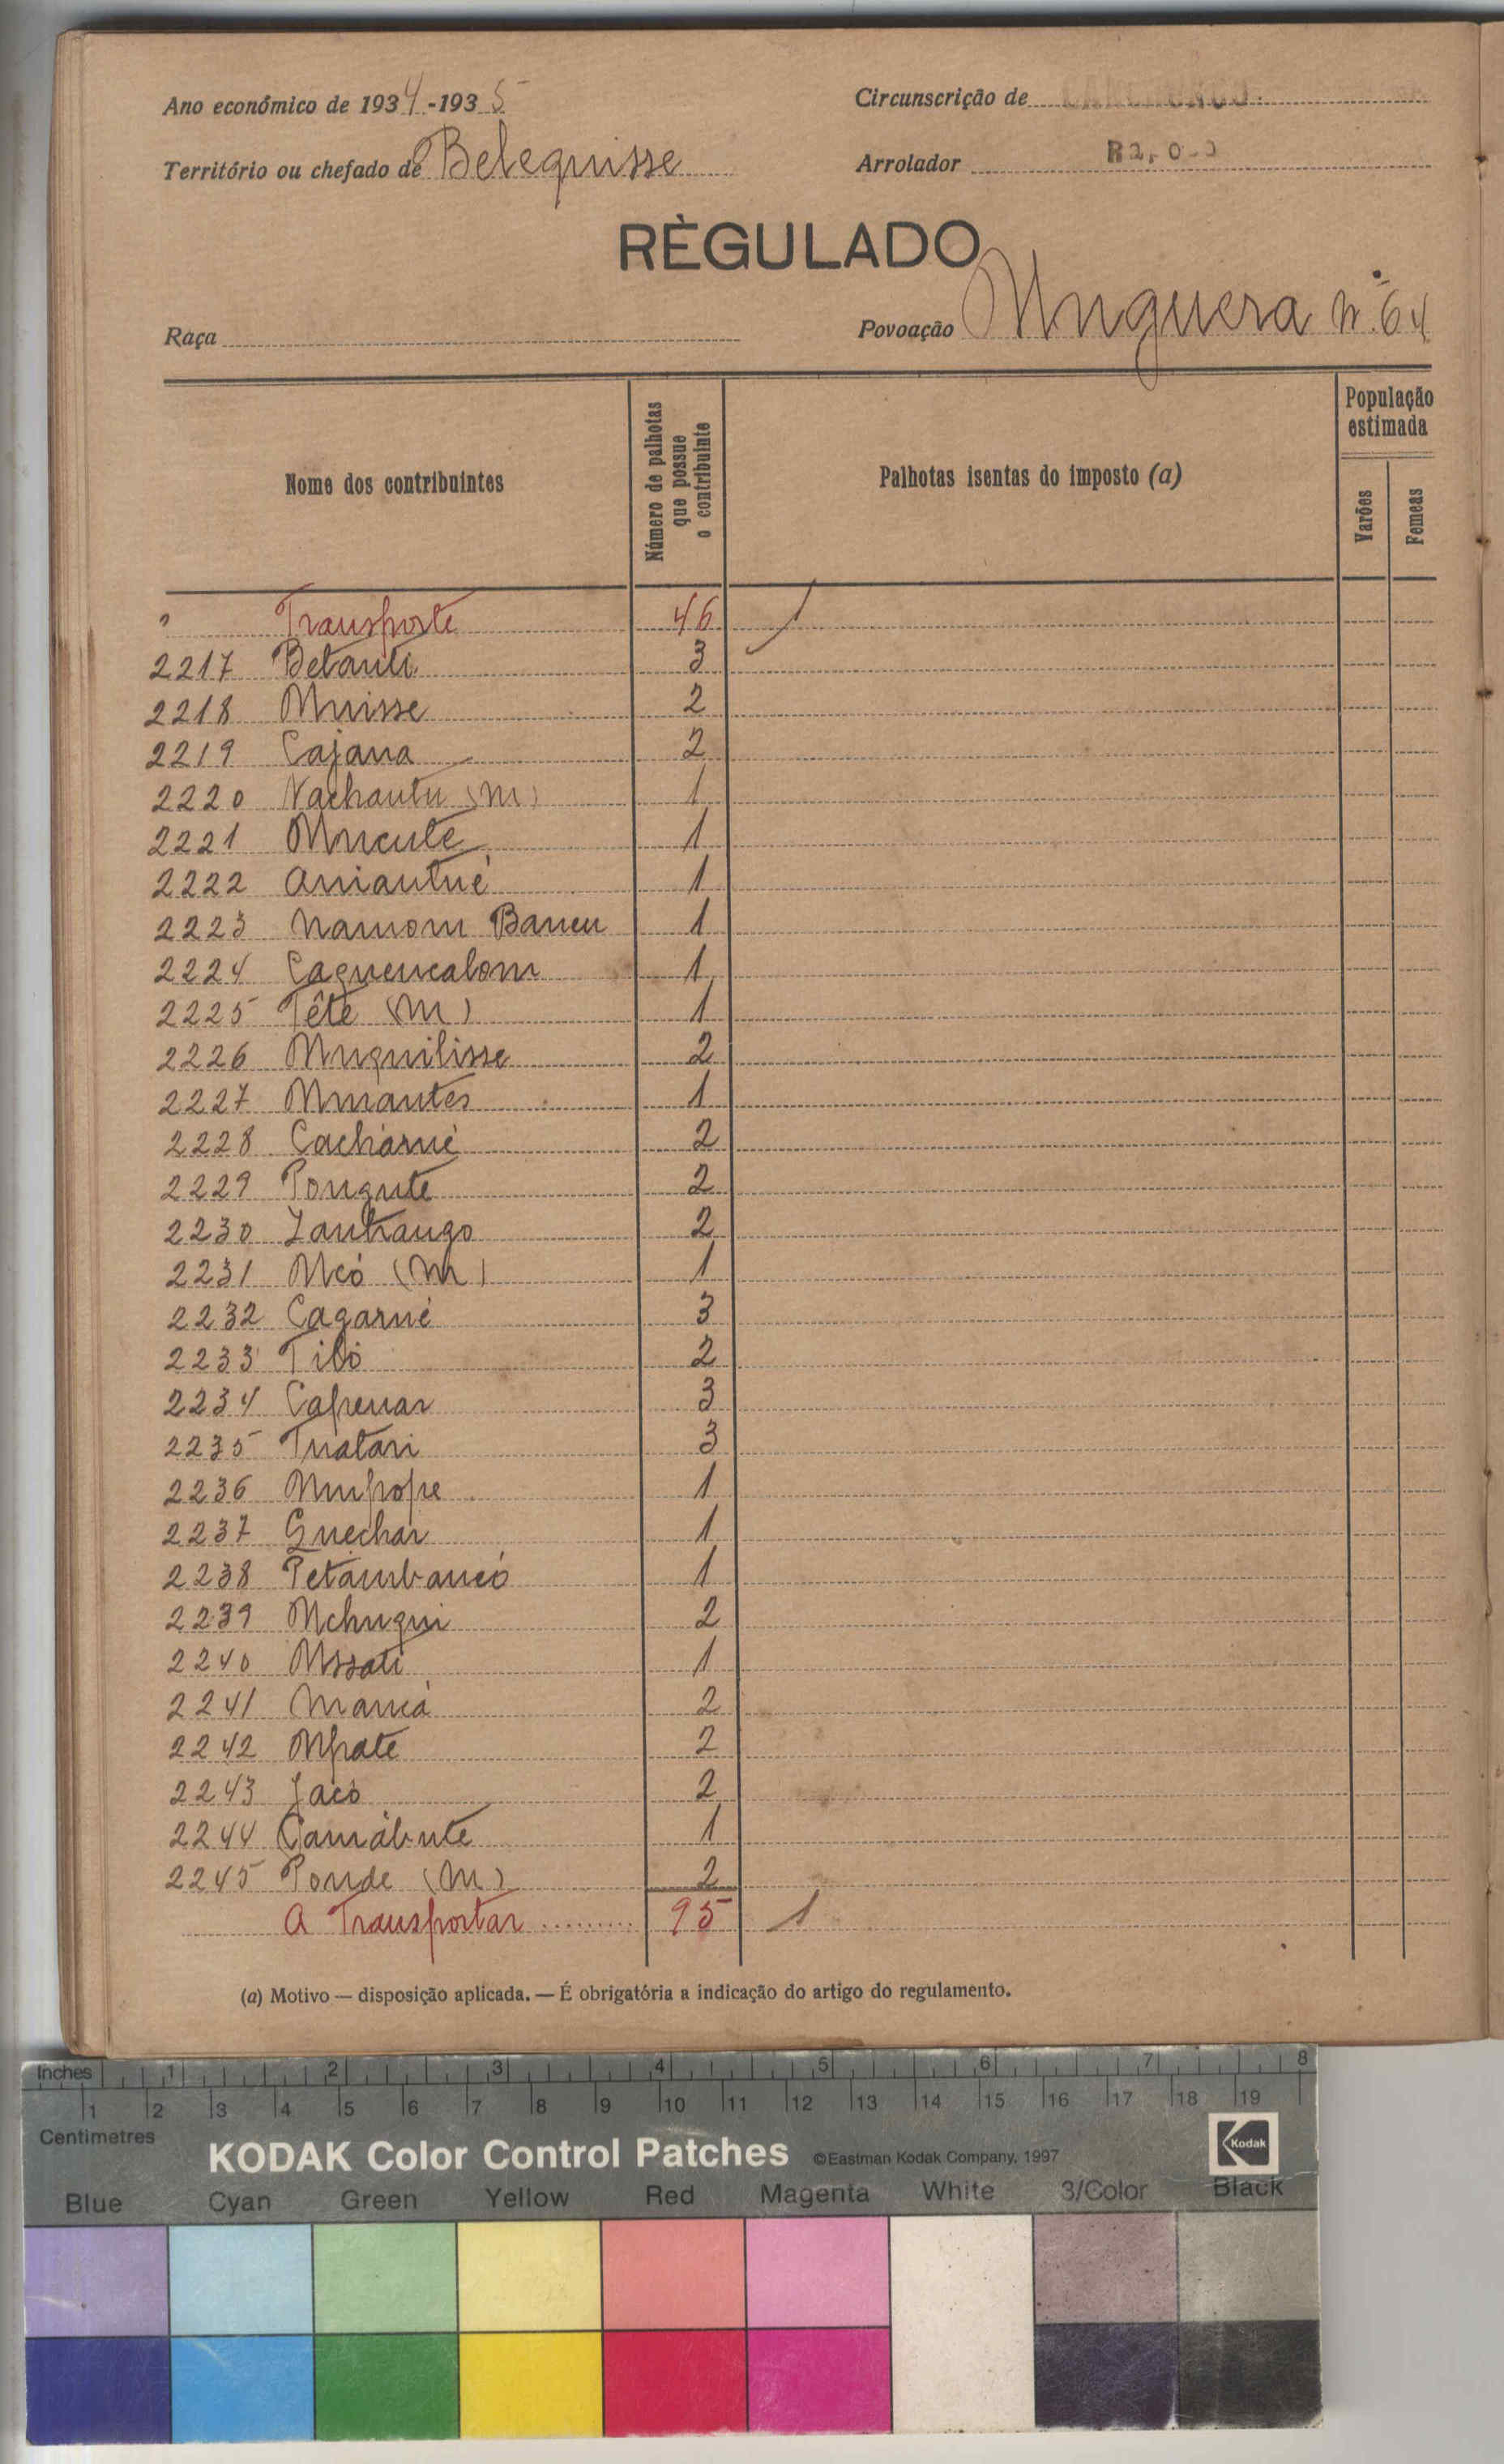 Ano económico de 1934-1935
Circunscrição de
Território ou chefado de Belequisse
Arrolador
RÈGULADO
Raça
Povoação Unguera nº 64
Nome dos contribuintes
Número de palhotas que possue o contribuinte
Palhotas isentas do imposto (a)
População estimada
Varões
Femeas
Transporte 46 1
2217 Betanti 3
2218 Muisse 2
2219 Cajana 2
2220 Nachantu (M) 1
2221 Mucute 1
2222 Aniantué 1
2223 Namom Bancu 1
2224 Caquencalom 1
2225 Têtê (M) 1
2226 Muquilisse 2
2227 Mmantes 1
2228 Cachámé 2
2229 Pongute 2
2230 Zanhango 2
2231 Mcó (M) 1
2232 Cagarné 3
2233 Tibó 2
2234 Cafrenar 3
2235 Tuatari 3
2236 Mmpope 1
2237 Quechar 1
2238 Petambancó 1
2239 Mchuqui 2
2240 Mssati 1
2241 Mancá 2
2242 Mpate 2
2243 Jacó 2
2244 Camábute 1
2245 Ponde (M) 2
A Transportar 95 1
(a) Motivo — disposição aplicada. — É obrigatória a indicação do artigo do regulamento.
Inches 1 2 3 4 5 6 7 8
1 2 3 4 5 6 7 8 9 10 11 12 13 14 15 16 17 18 19
Centimetres
KODAK Color Control Patches ©Eastman Kodak Company, 1997 Kodak
Blue Cyan Green Yellow Red Magenta White 3/Color Black